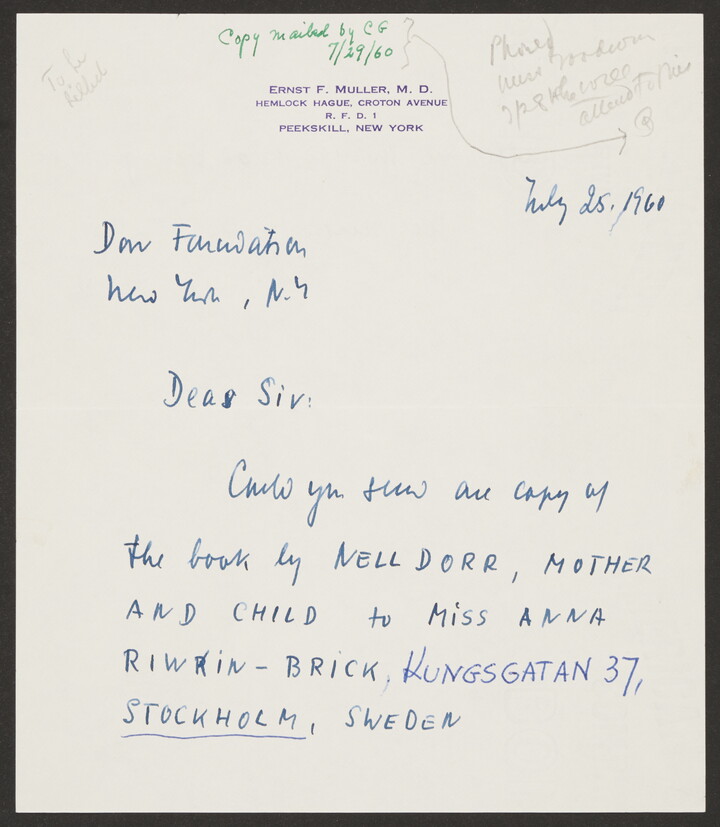 Copy mailed by CG
7/29/60
To be
billed
Phoned
Miss Goodwin
she will
attend to this
ERNST F. MULLER, M. D.
HEMLOCK HAGUE, CROTON AVENUE
R. F. D. 1
PEEKSKILL, NEW YORK
July 25. 1960
Dorr Foundation
New York, N.Y
Dear Sir:
Could you send one copy of
the book by NELL DORR, MOTHER
AND CHILD to MISS ANNA
RIWKIN-BRICK, KUNGSGATAN 37,
STOCKHOLM, SWEDEN